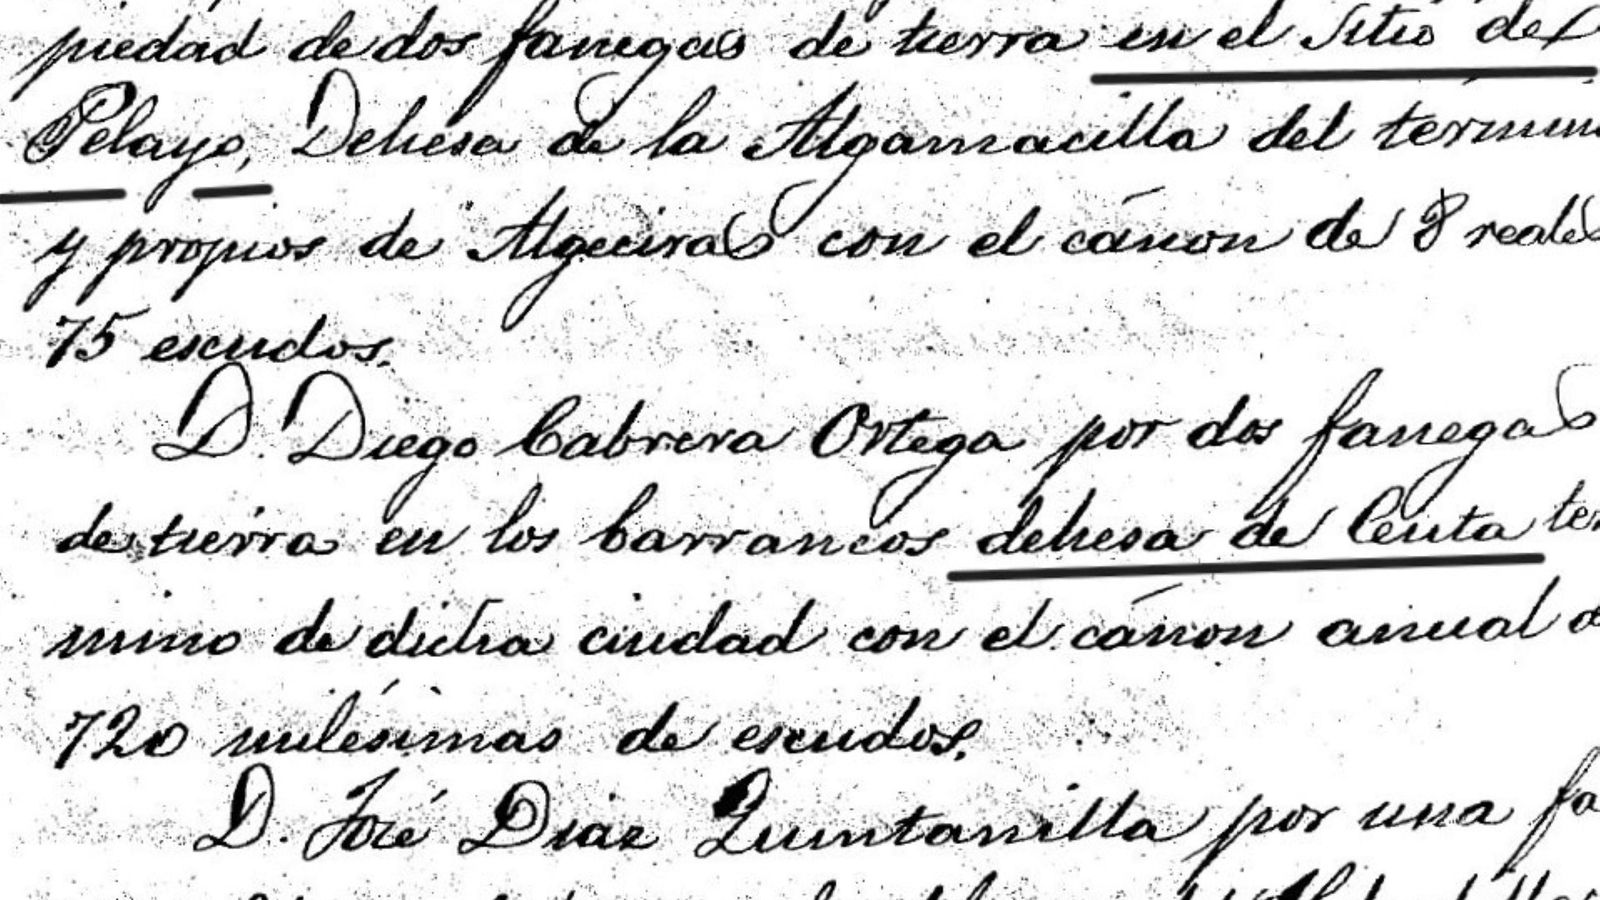 piedad de dos fanegas de tierra en el Sitio del
Pelayo, Dehesa de la Algamacilla del términ
y propios de Algeciras con el cánon de 8 reales
75 escudos.
D. Diego Cabrera Ortega por dos fanegas
de tierra en los barrancos dehesa de Ceuta ter
mino de dicha ciudad con el cánon anual d
720 milésimas de escudos.
D. José Diaz Quintanilla por una fa